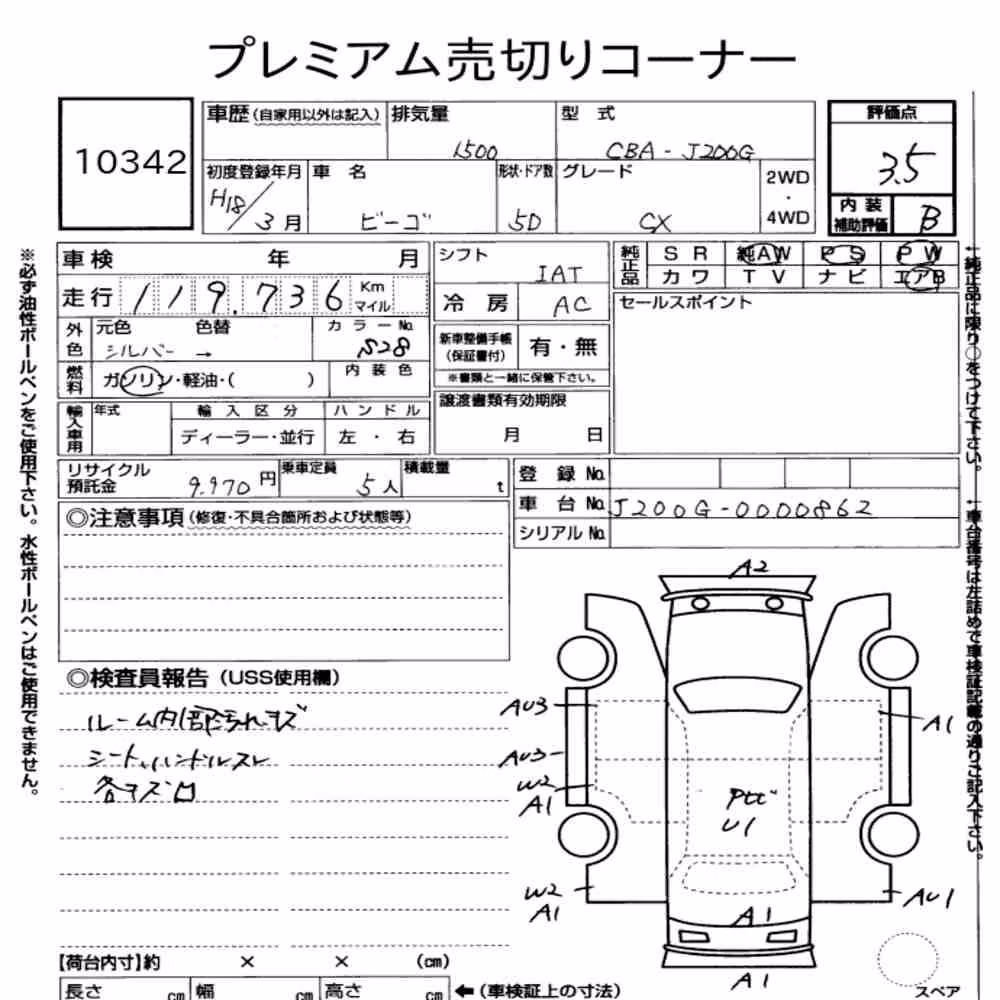 プレミアム売切りコーナー
10342
車歴(自家用以外は記入) 排気量 型 式 評価点
1500 CBA-J200G 3.5
初度登録年月 車 名 形状・ドア数 グレード 2WD
・
4WD
H18/3月 ビーゴ 5D CX
内装
補助評価 B
車検 年 月 シフト IAT
純正品 SR 純AW PS PW
カワ TV ナビ エアB
走行 119,736 Km
マイル
冷 房 AC
セールスポイント
外色 元色 色替 カラーNo.
シルバー → S28
新車整備手帳
(保証書付) 有・無
※書類と一緒に保管下さい。
燃料 ガソリン・軽油・( ) 内装色
譲渡書類有効期限
月 日
輸入車用 年式 輸入区分 ハンドル
ディーラー・並行 左・右
リサイクル
預託金 9.970円 乗車定員 5人 積載量 t
登録No.
車台No. J200G-0000862
シリアルNo.
◎注意事項(修復・不具合箇所および状態等)
◎検査員報告(USS使用欄)
ルーム内部汚れキズ
シート、ハンドルスレ
各キズ凹
A2
AU3
A1
AU3
W2
A1
U1
W2
A1
AU1
A1
A1
スペア
【荷台内寸】約 × × (cm)
長さ cm 幅 cm 高さ cm ←(車検証上の寸法)
※必ず油性ボールペンをご使用下さい。水性ボールペンはご使用できません。
←純正品に限り○をつけて下さい。
←車台番号は左詰めで車検証記載の通りご記入下さい。